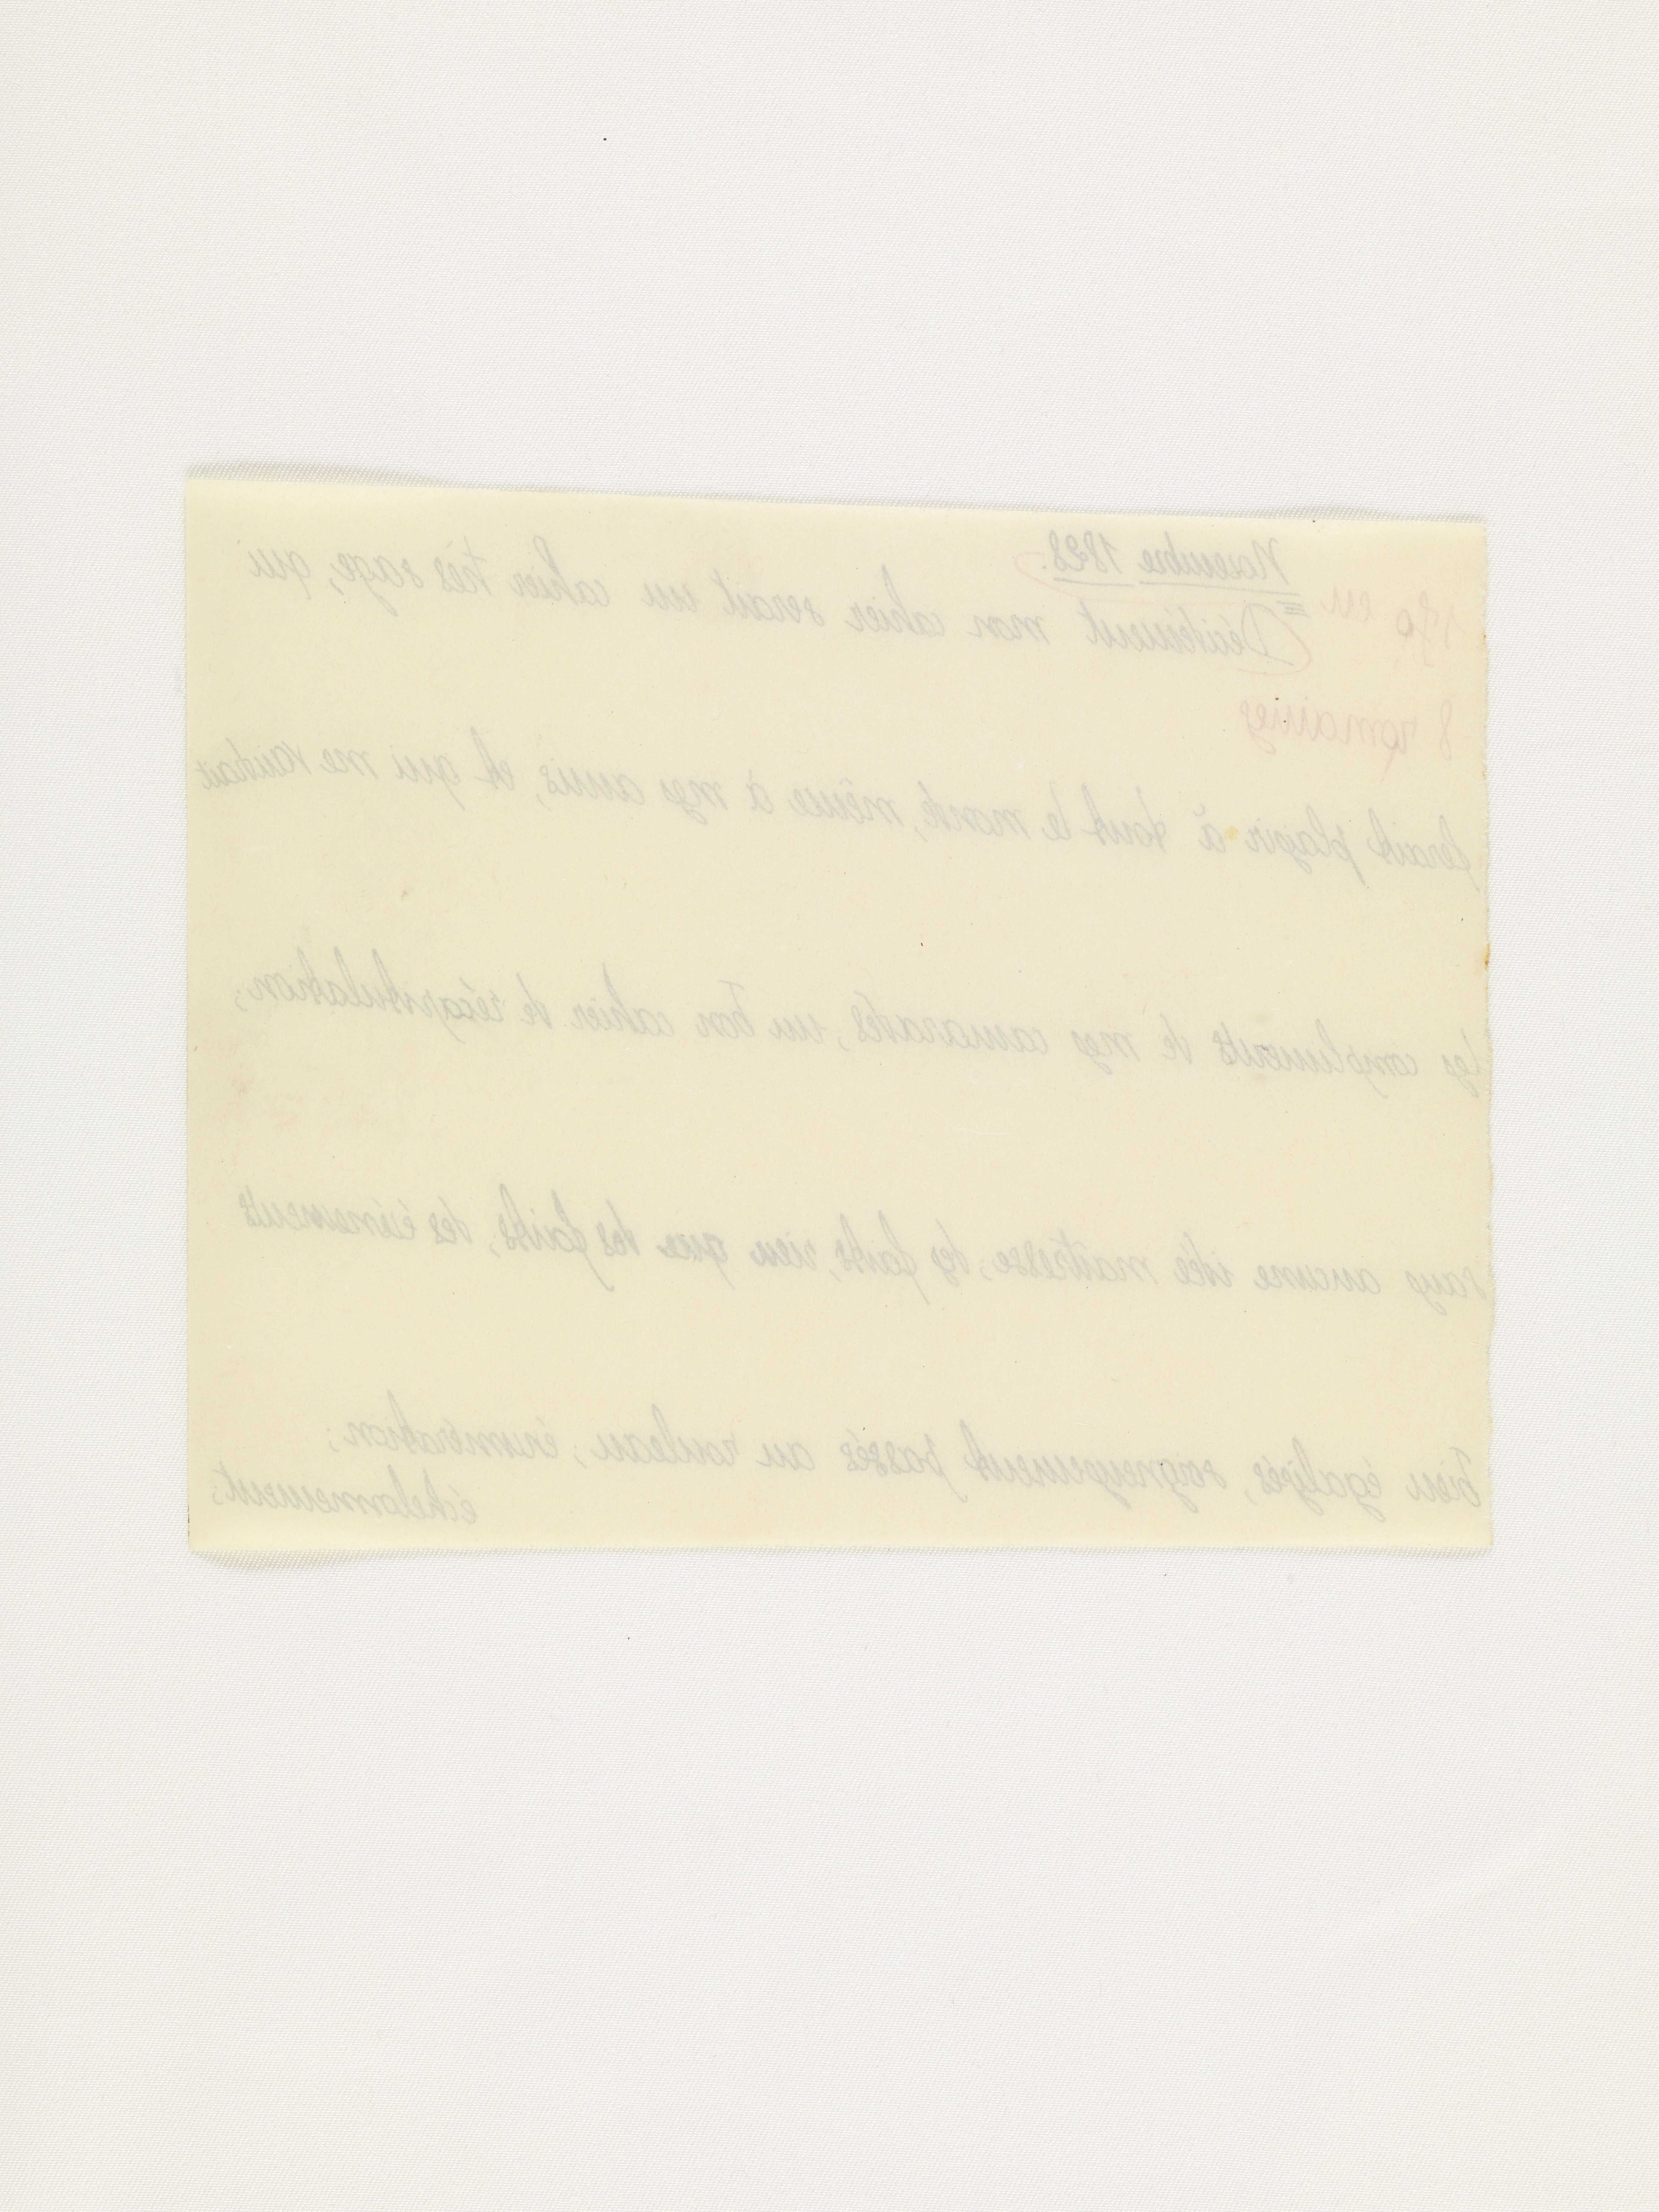 Novembre 1898.
170 en
Décidément mon cahier serait un cahier très sage, qui
8 romaines
ferait plaisir à tout le monde, même à mes amis, et qui me vaudrait
les compliments de mes camarades; un bon cahier de récapitulation;
sans aucune idée maîtresse; des faits, rien que des faits, des événements
bien égalisés, soigneusement passés au rouleau; énumération;
échelonnement;